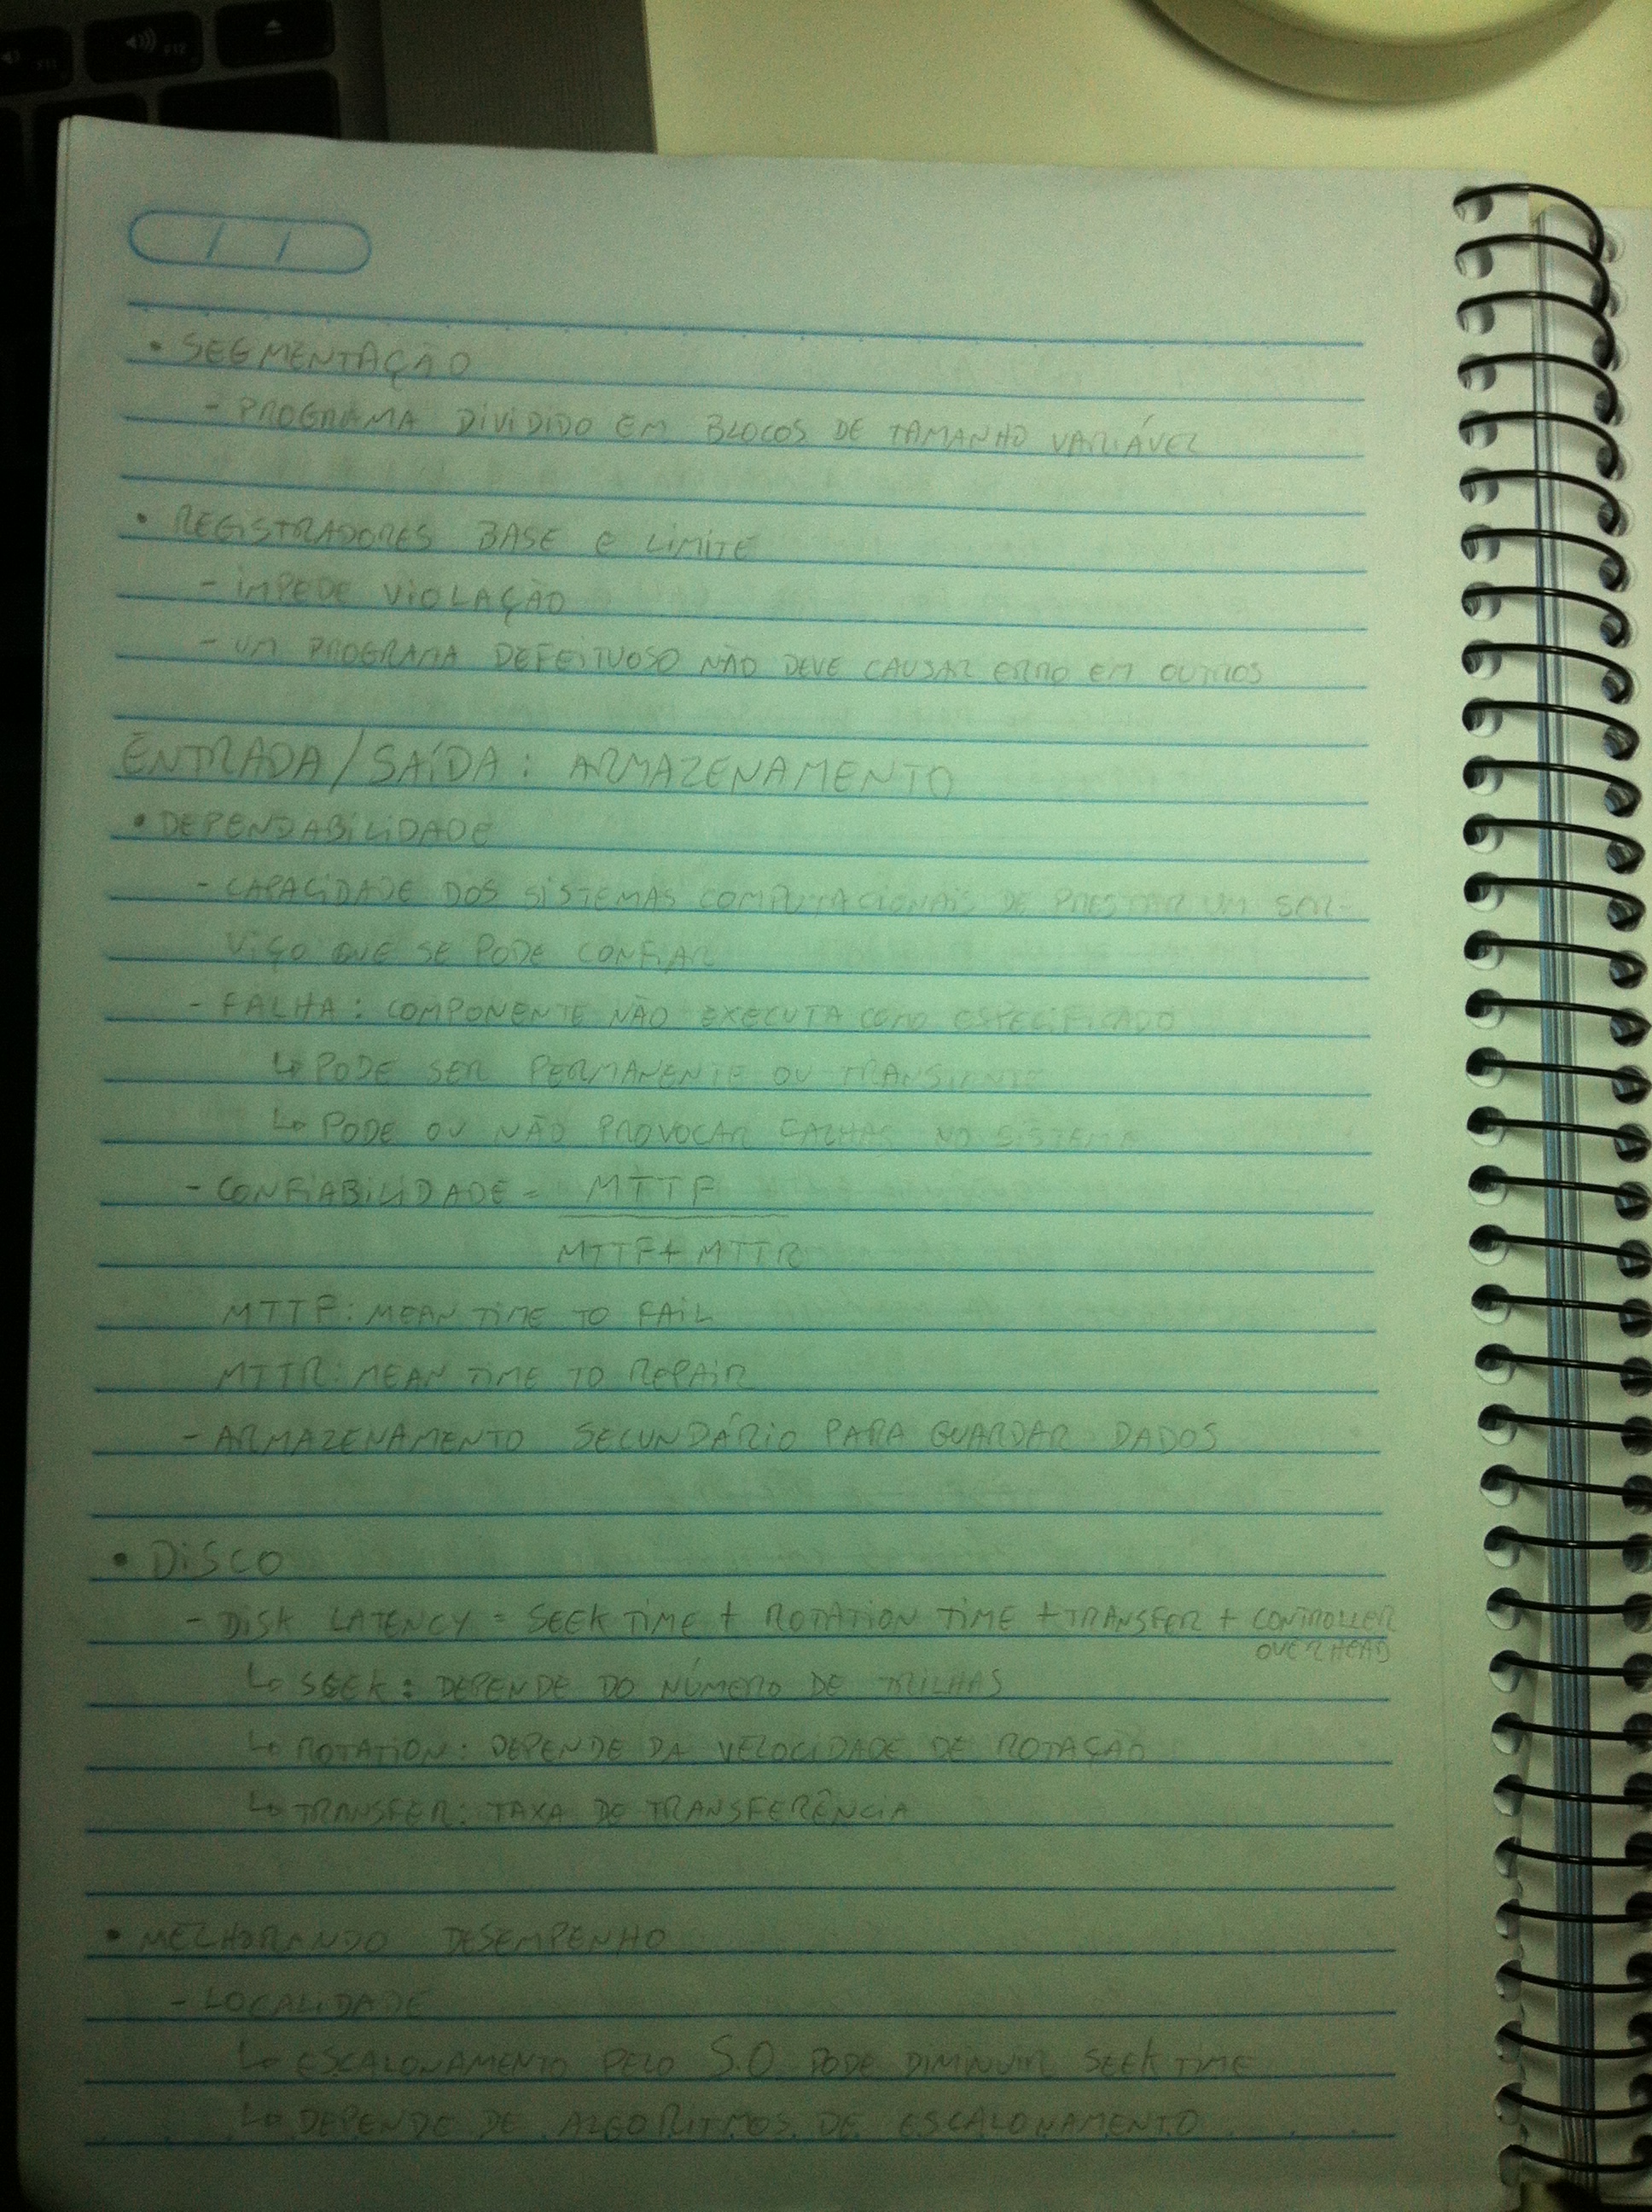 F11 F12
/ /
• SEGMENTAÇÃO
- PROGRAMA DIVIDIDO EM BLOCOS DE TAMANHO VARIÁVEL
• REGISTRADORES BASE E LIMITE
- IMPEDE VIOLAÇÃO
- UM PROGRAMA DEFEITUOSO NÃO DEVE CAUSAR ERRO EM OUTROS
ENTRADA/SAÍDA: ARMAZENAMENTO
• DEPENDABILIDADE
- CAPACIDADE DOS SISTEMAS COMPUTACIONAIS DE PRESTAR UM SER-
VIÇO QUE SE PODE CONFIAR
- FALHA: COMPONENTE NÃO EXECUTA COMO ESPECIFICADO
↳ PODE SER PERMANENTE OU TRANSIENTE
↳ PODE OU NÃO PROVOCAR FALHAS NO SISTEMA
- CONFIABILIDADE = MTTF
MTTF + MTTR
MTTF: MEAN TIME TO FAIL
MTTR: MEAN TIME TO REPAIR
- ARMAZENAMENTO SECUNDÁRIO PARA GUARDAR DADOS
• DISCO
- DISK LATENCY = SEEK TIME + ROTATION TIME + TRANSFER + CONTROLLER
OVERHEAD
↳ SEEK: DEPENDE DO NÚMERO DE TRILHAS
↳ ROTATION: DEPENDE DA VELOCIDADE DE ROTAÇÃO
↳ TRANSFER: TAXA DE TRANSFERÊNCIA
• MELHORANDO DESEMPENHO
- LOCALIDADE
↳ ESCALONAMENTO PELO S.O PODE DIMINUIR SEEK TIME
↳ DEPENDE DE ALGORITMOS DE ESCALONAMENTO